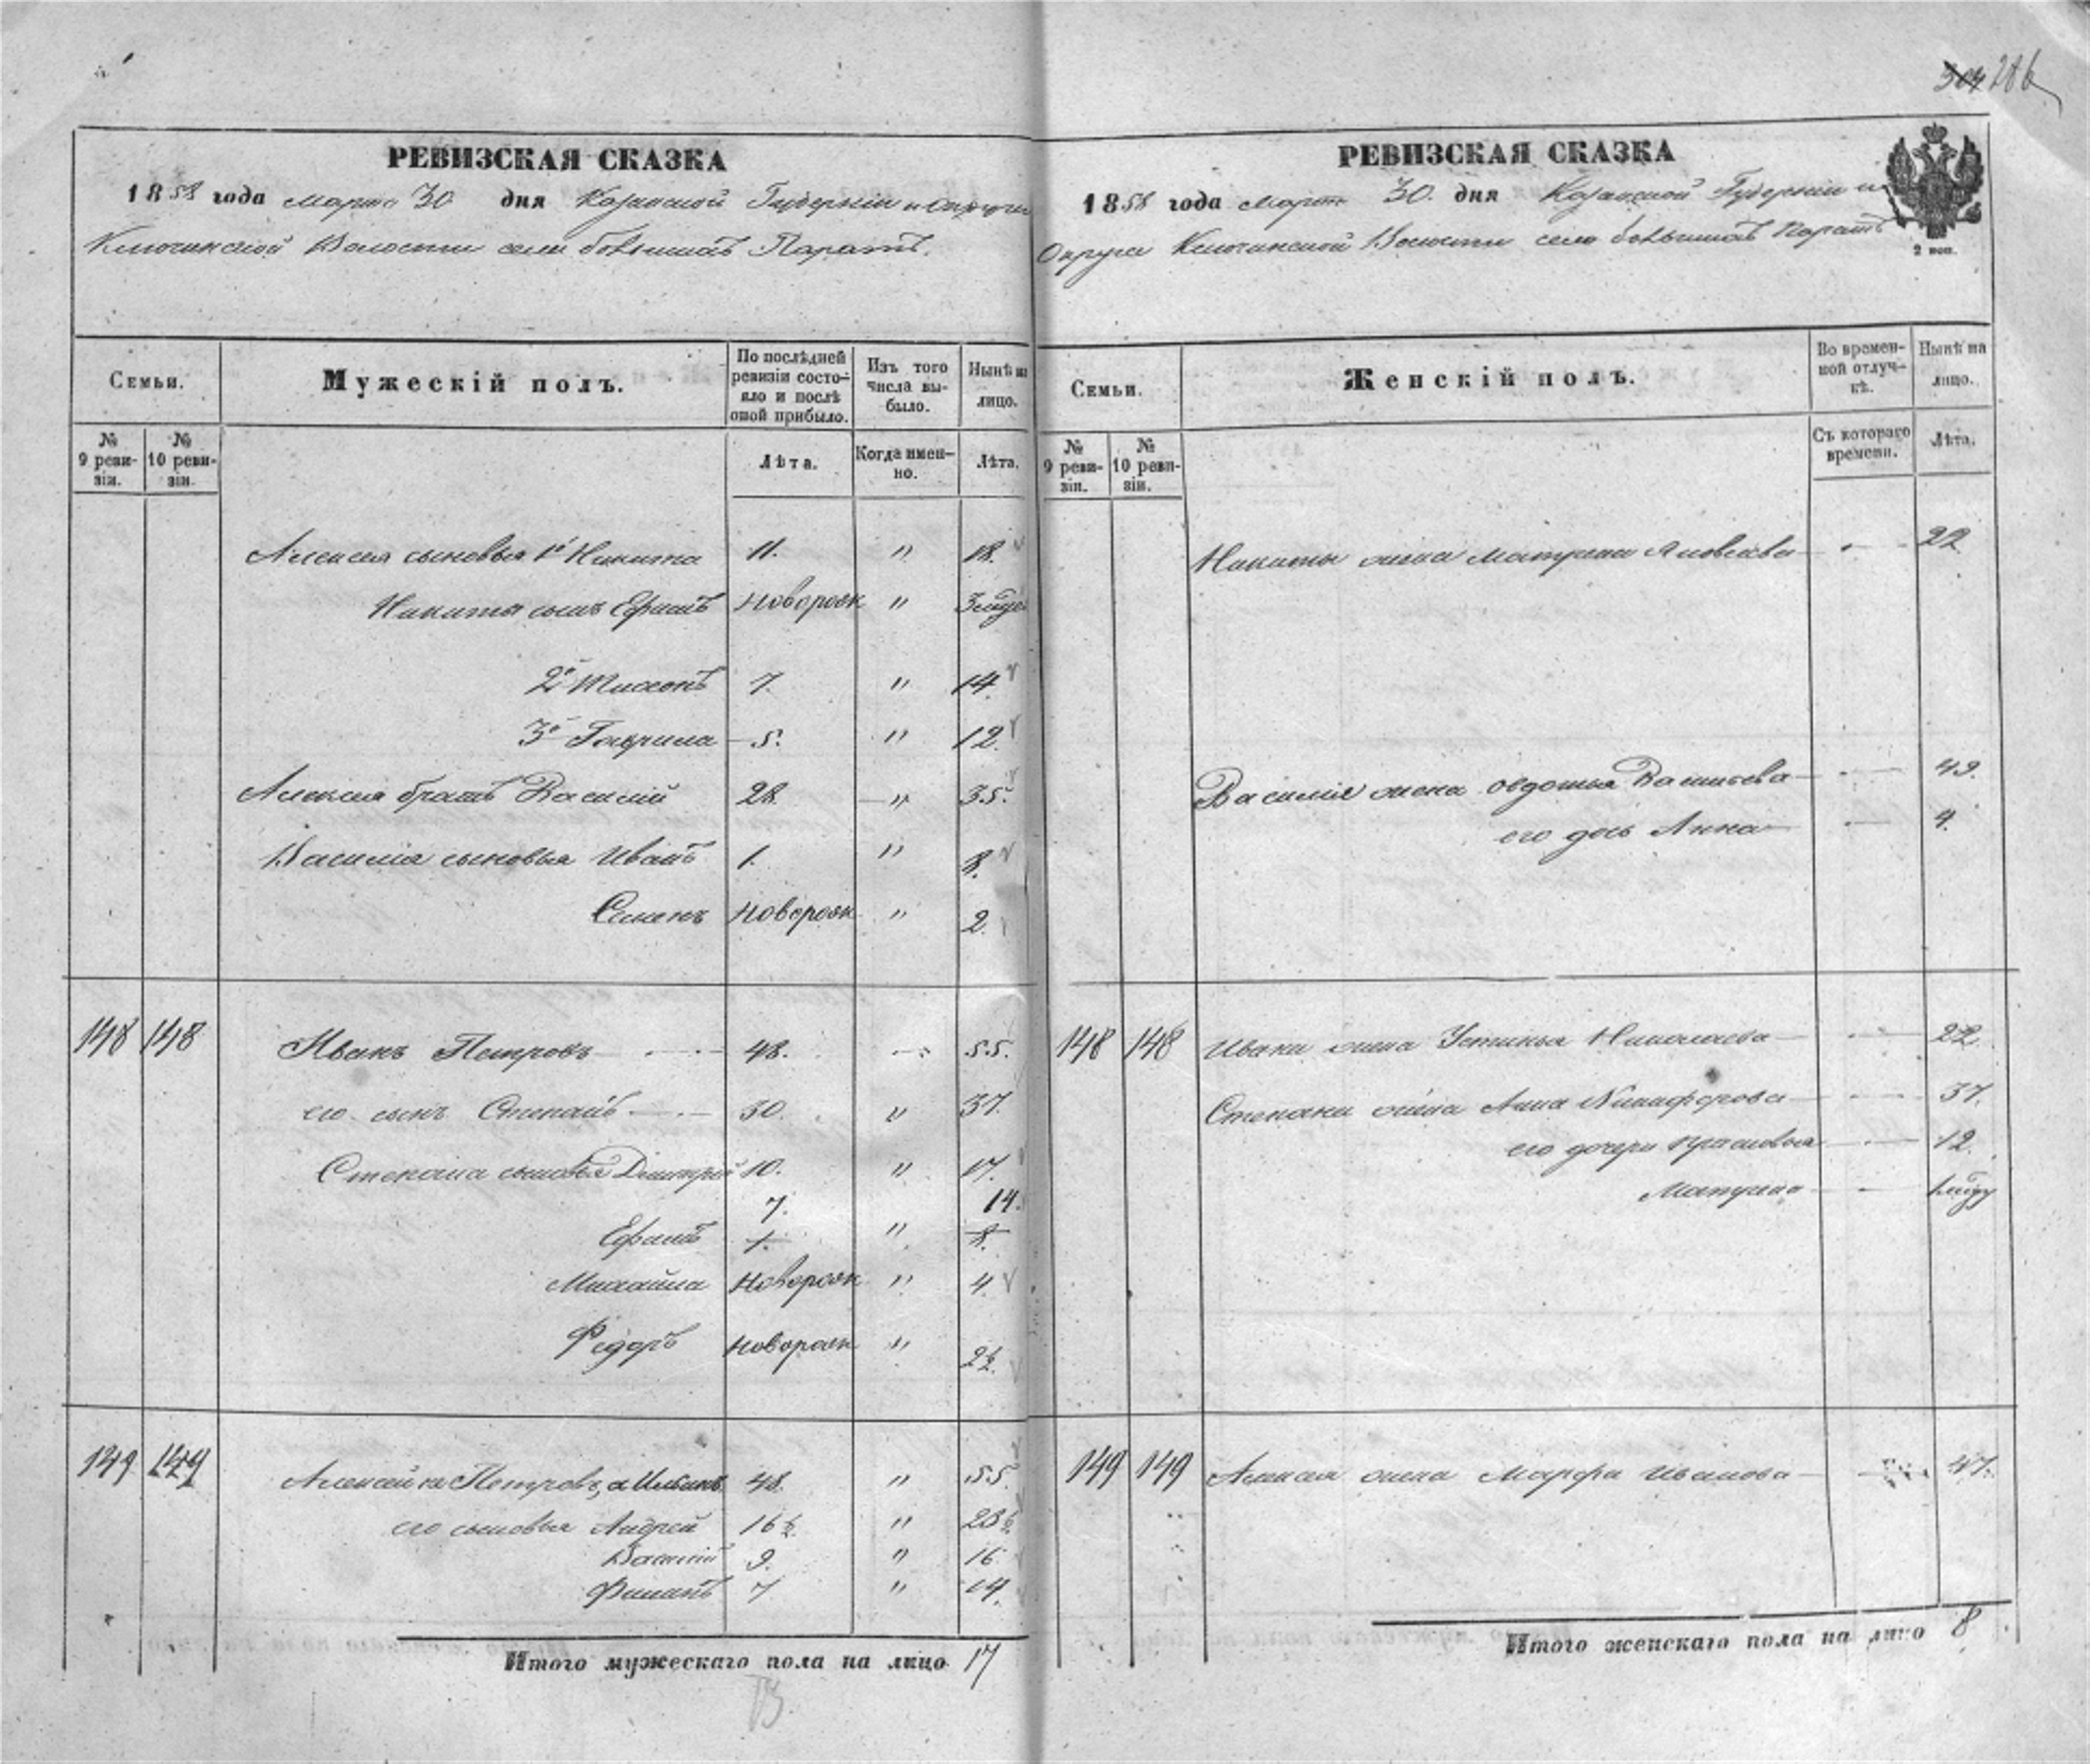 304 286
РЕВИЗСКАЯ СКАЗКА
1858 года марта 30 дня Казанской Губерніи и Округи
Ключинской Волости села большихъ Паратъ.
Семьи.
Мужескій полъ.
По послѣдней ревизіи состояло и послѣ оной прибыло.
Изъ того числа выбыло.
Нынѣ на лицо.
№ 9 ревизіи.
№ 10 ревизіи.
Лѣта.
Когда именно.
Лѣта.
Алексея сыновья 1й Никита 11. " 18.
Никиты сынъ Ефимъ Новорож " 3 мѣде
2й Тихонъ 7. " 14.
3й Гаврила 5. " 12.
Алексея братъ Василій 28. " 35.
Василія сыновья Иванъ 1. " 8.
Семенъ Новорож " 2.
148 148 Иванъ Петровъ 48. " 55.
его сынъ Степанъ 30. " 37.
Степана сыновья Дмитрій 10. " 17.
7. 14.
Ефимъ 1. " 8.
Михайла Новорож " 4
Федоръ Новорож " 2½.
149 149 Алексей Петровъ, а Ильинъ 48. " 55.
его сыновья Андрей 16½ " 23½
Василій 9. " 16
Филипъ 7 " 14.
Итого мужескаго пола на лицо 17
РЕВИЗСКАЯ СКАЗКА
1858 года марта 30. дня Казанской Губерніи и
Округи Ключинской Волости село большихъ Паратъ
2 коп.
Семьи.
Женскій полъ.
Во временной отлучкѣ.
Нынѣ на лицо.
№ 9 ревизіи.
№ 10 ревизіи.
Съ котораго времени.
Лѣта.
Никиты жена Матрена Яковлева 22
Василія жена Овдотья Васильева 49.
его дочь Анна 4.
148 148 Ивана жена Устинья Николаева 22
Степана жена Анна Никифорова 37.
его дочери Прасковья 12.
Матрена
149 149 Алексея жена Марфа Иванова 47.
Итого женскаго пола на лицо 8